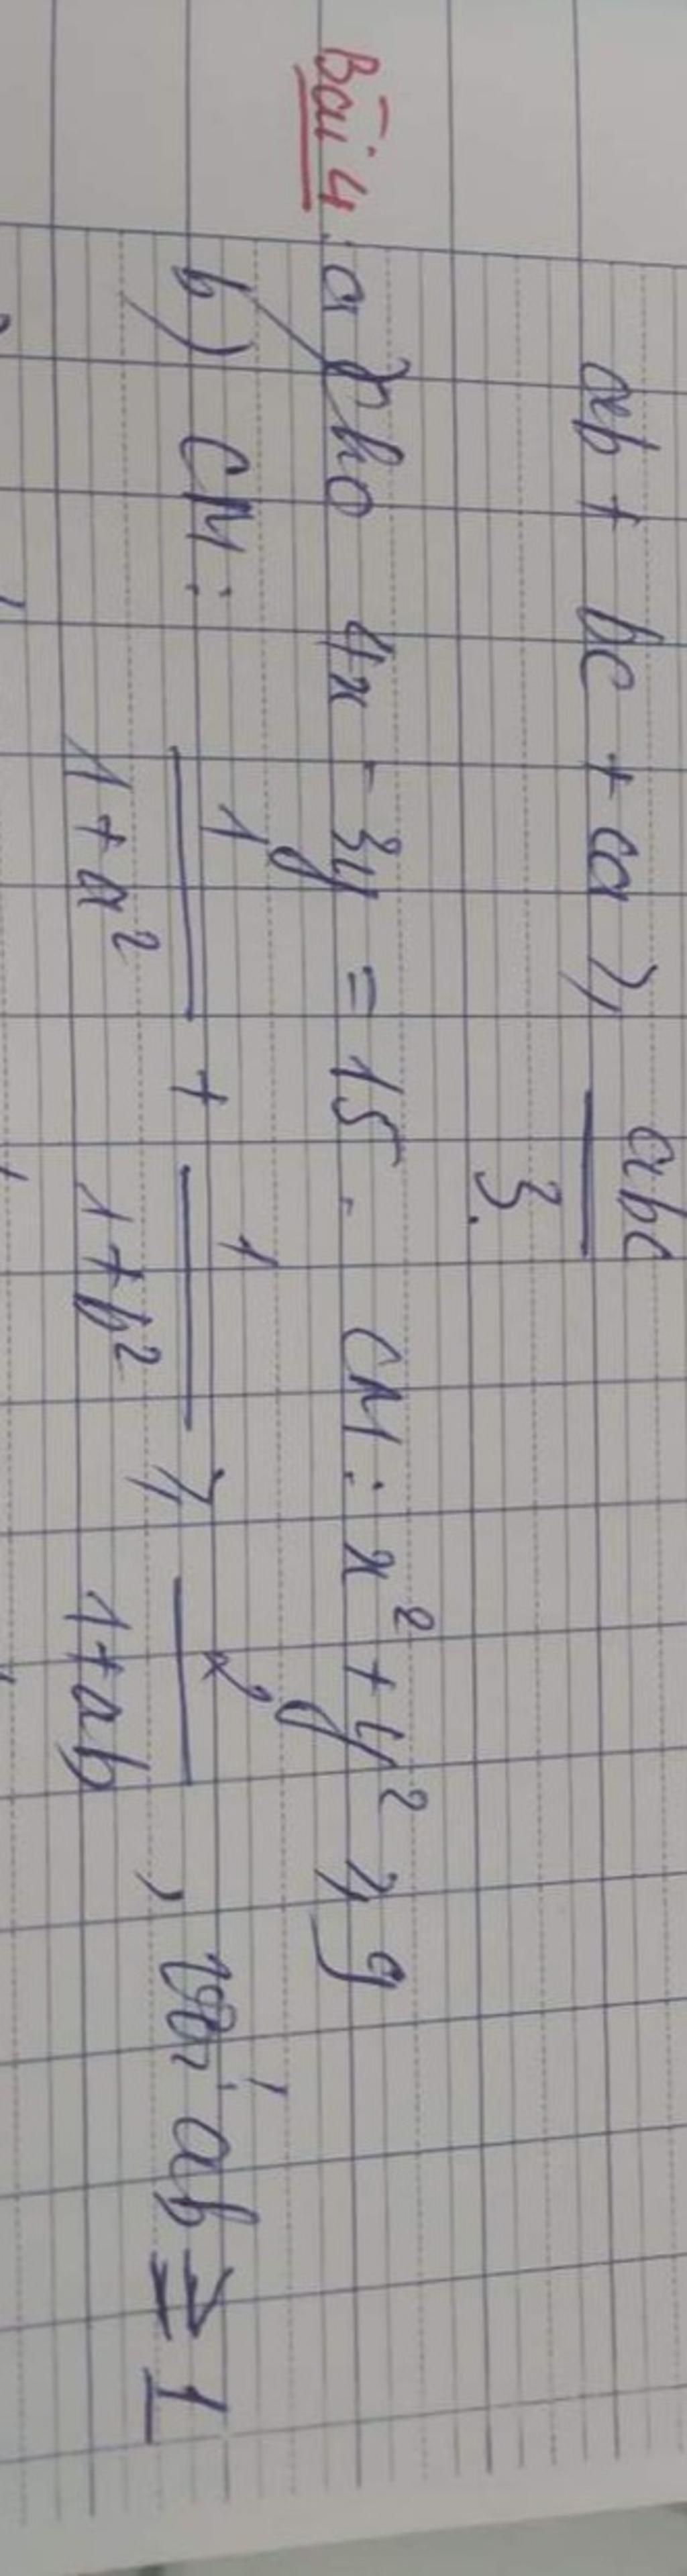 ab + bc + ca ≥ abc/3.
Bài 4: a) Cho 4x - 3y = 15. CM: x² + y² ≥ 9
b) CM: 1/(1+a²) + 1/(1+b²) ≥ 2/(1+ab), với ab ≥ 1